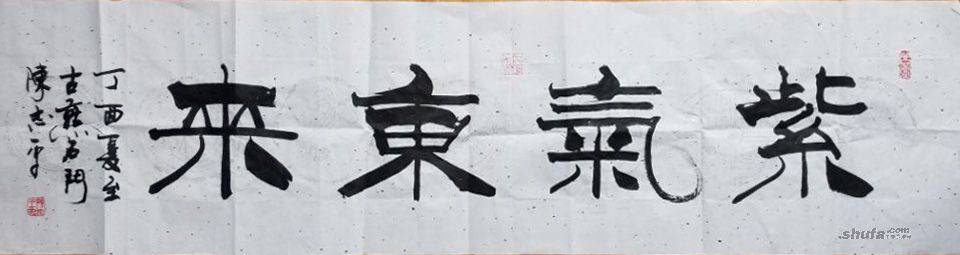 紫氣東来
丁酉夏至
古燕石門
陳志平
.shufa.com